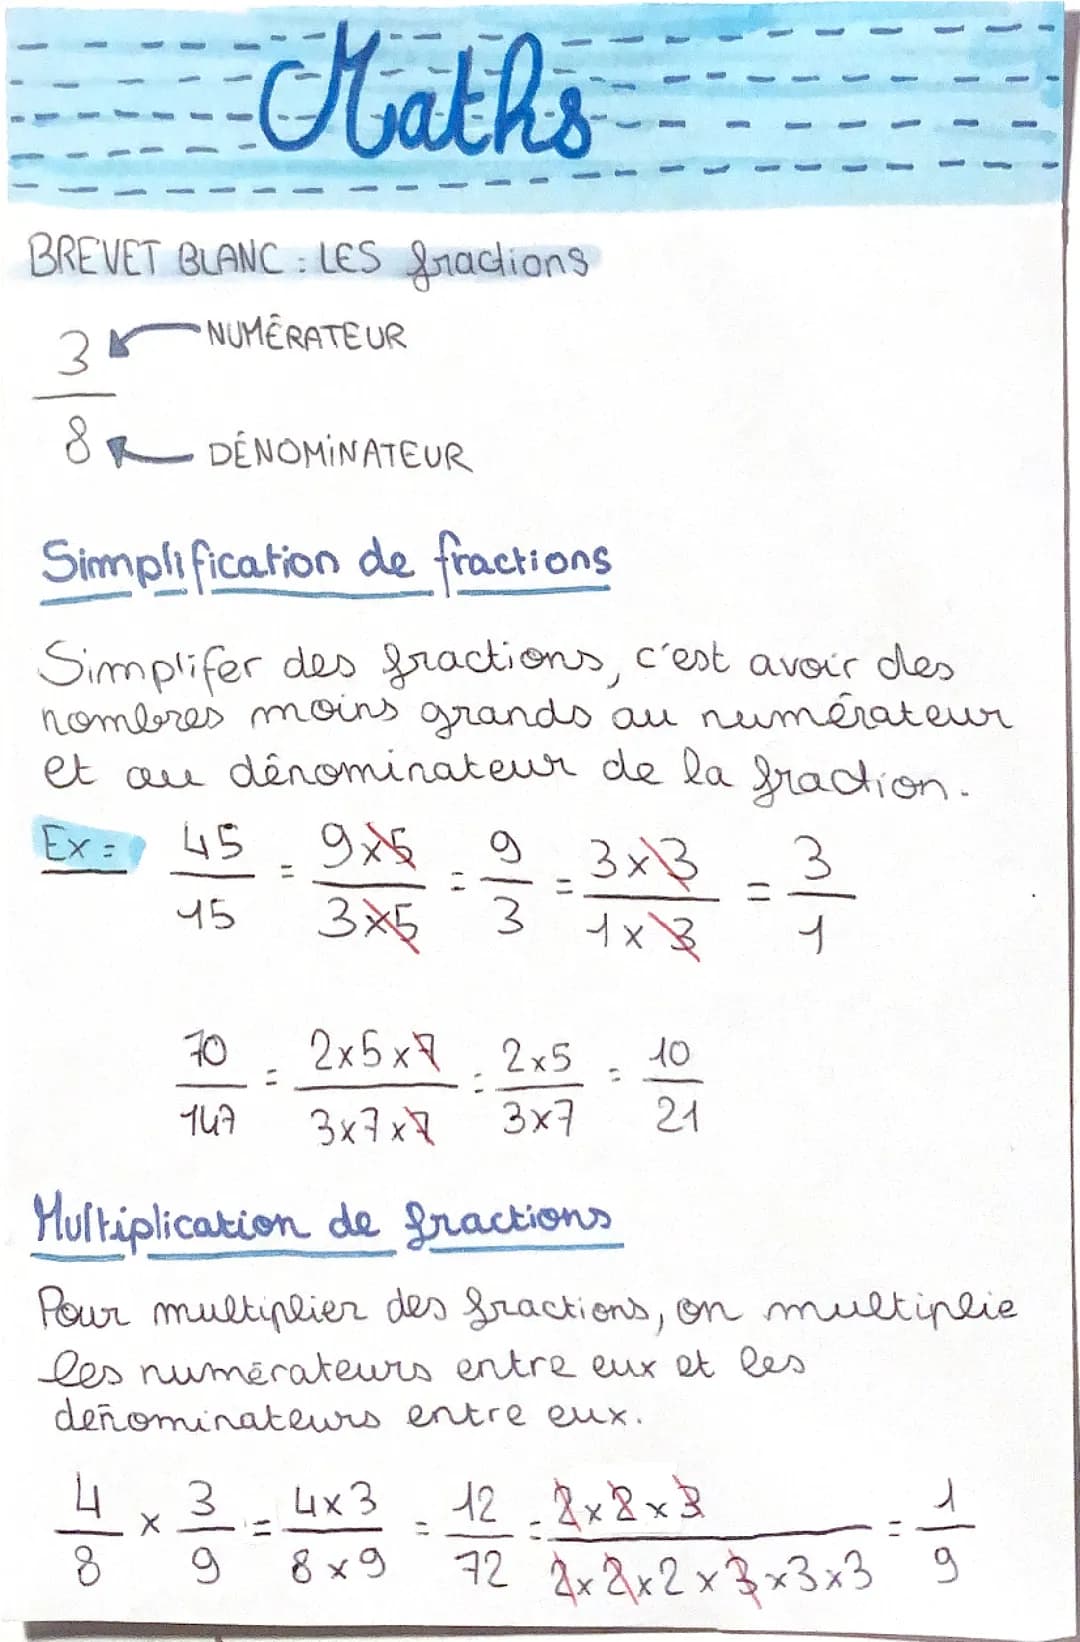 Maths
BREVET BLANC : LES fractions
3 NUMÉRATEUR
8 DÉNOMINATEUR
Simplification de fractions
Simplifer des fractions, c'est avoir des
nombres moins grands au numérateur
et au dénominateur de la fraction.
Ex = 45/15 = 9x5/3x5 = 9/3 = 3x3/1x3 = 3/1
70/147 = 2x5x7/3x7x7 = 2x5/3x7 = 10/21
Multiplication de fractions
Pour multiplier des fractions, on multiplie
les numérateurs entre eux et les
dénominateurs entre eux.
4/8 x 3/9 = 4x3/8x9 = 12/72 = 2x2x3/2x2x2x3x3x3 = 1/9